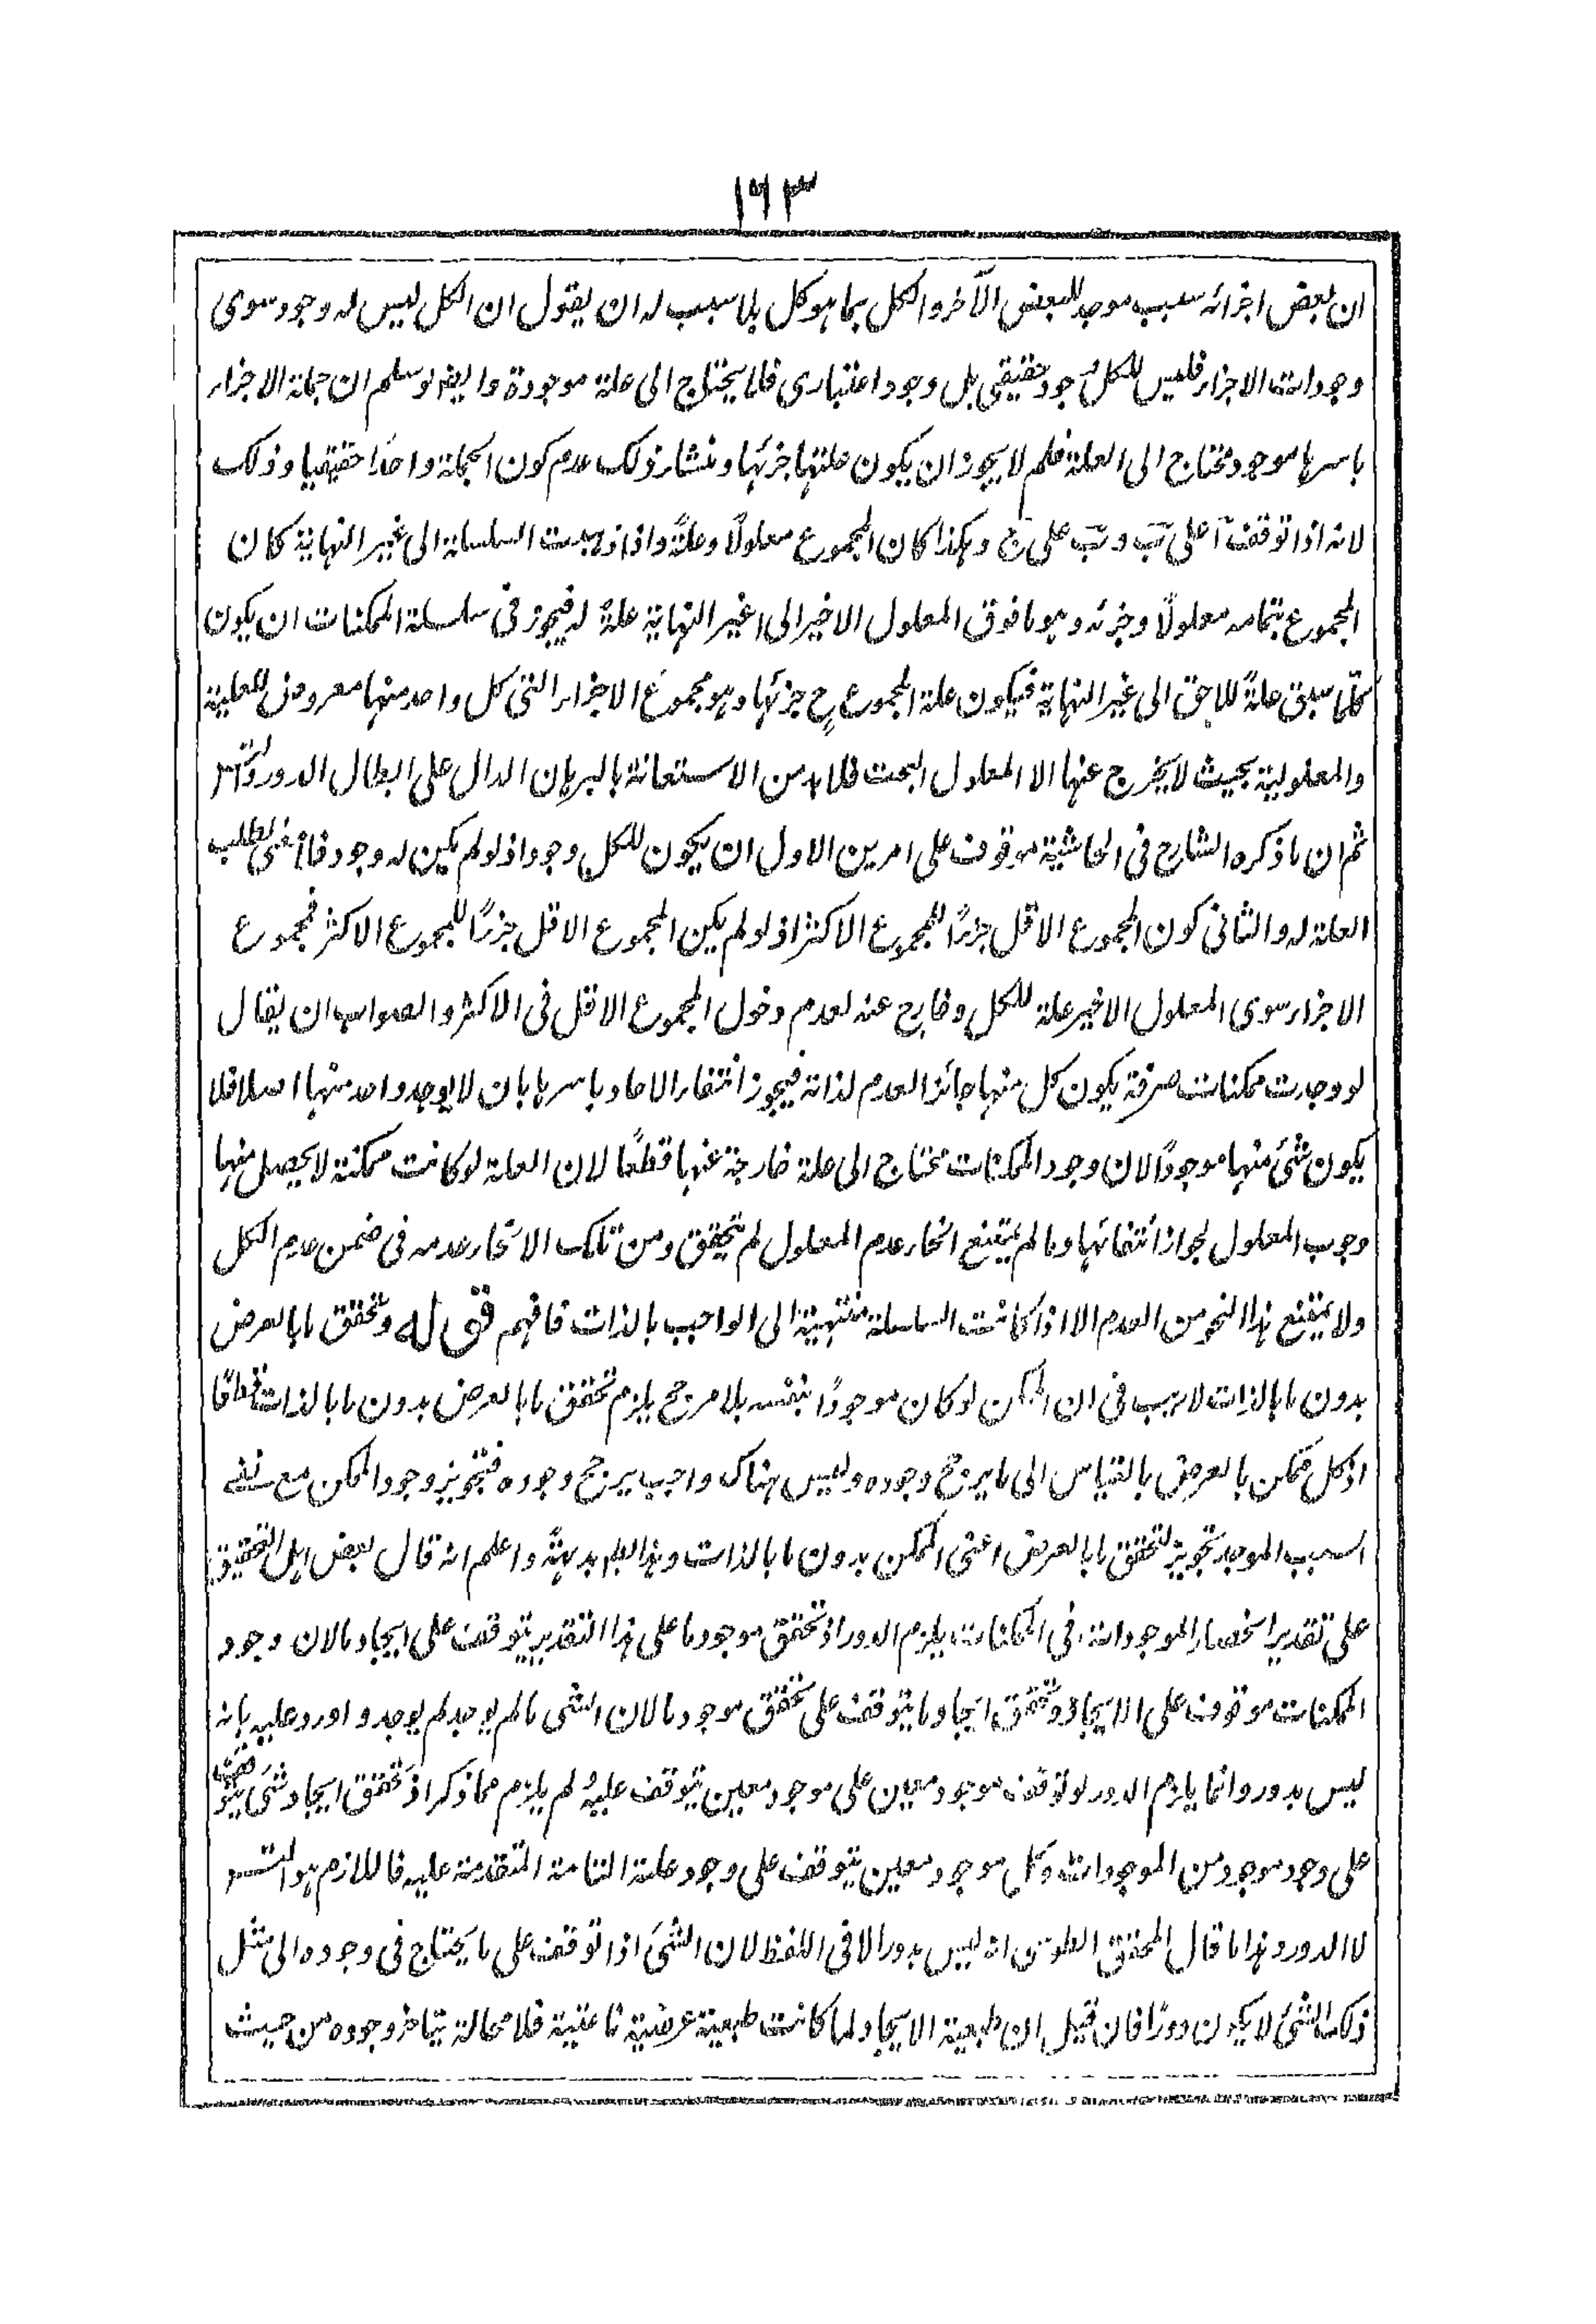 ١٦٣
ان بعض اجزائه سبب موجد للبعض الآخر والكل بما هو كل بلا سبب له ان يقول ان الكل ليس له وجود سوى
وجودات الاجزاء فليس للكل وجود حقيقي بل وجود اعتبارى فلا يحتاج الى علة موجودة وايضا لو سلم ان جملة الاجزاء
باسرها موجود محتاج الى العلة فلم لا يجوز ان يكون علتها جزئها ومنشاء ذلك عدم كون الجملة واحدًا حقيقيا وذلك
لانه اذا توقف آ على ب و ب على ج وهكذا كان المجموع معلولًا وعلةً واذا ذهبت السلسلة الى غير النهاية كان
المجموع بتمامه معلولًا وجزئه وهو ما فوق المعلول الاخير الى غير النهاية علةً له فيجوز فى سلسلة الممكنات ان يكون
كلما سبق علةً للاحق الى غير النهاية فيكون علة المجموع ح جزئها وهو مجموع الاجزاء التى كل واحد منها معروض للعلية
والمعلولية بحيث لا يخرج عنها الا المعلول البحت فلا بد من الاستعانة بالبرهان الدال على ابطال الدور والتس
ثم ان ما ذكره الشارح فى الحاشية موقوف على امرين الاول ان يكون للكل وجود اذ لو لم يكن له وجود فلا معنى لطلب
العلة له والثانى كون المجموع الاقل جزءًا للمجموع الاكثر اذ لو لم يكن المجموع الاقل جزءًا للمجموع الاكثر فمجموع
الاجزاء سوى المعلول الاخير علة للكل وخارج عنه لعدم دخول المجموع الاقل فى الاكثر والصواب ان يقال
لو وجدت ممكنات صرفة يكون كل منها جائز العدم لذاته فيجوز انتفاء الاحاد باسرها بان لا يوجد واحد منها اصلا فلا
يكون شئ منها موجودًا لان وجود الممكنات محتاج الى علة خارجة عنها قطعًا لان العلة لو كانت ممكنة لا يحصل منها
وجوب المعلول لجواز انتفائها وما لم يمتنع انحاء عدم المعلول لم يتحقق ومن تلك الانحاء عدمه فى ضمن عدم الكل
ولا يمتنع هذا النحو من العدم الا اذا كانت السلسلة منتهية الى الواجب بالذات فافهم قوله وتحقق ما بالعرض
بدون ما بالذات لا ريب فى ان الممكن لو كان موجودًا بنفسه بلا مرجح يلزم تحقق ما بالعرض بدون ما بالذات
اذ كل ممكن بالعرض بالقياس الى ما يرجح وجوده وليس هناك واجب يرجح وجوده فتجويز وجود الممكن مع نفى
السبب الموجد تجويز لتحقق ما بالعرض اعنى الممكن بدون ما بالذات وهذا بط بديهةً واعلم انه قال بعض اهل التحقيق
على تقدير انحصار الموجودات فى الممكنات يلزم الدور اذ تحقق موجود ما على هذا التقدير يتوقف على ايجاد ما لان وجود
الممكنات موقوف على الايجاد وتحقق ايجاد ما يتوقف على تحقق موجود ما لان الشئ ما لم يوجد لم يوجد واورد عليه بانه
ليس بدور وانما يلزم الدور لو توقف موجود معين على موجود معين يتوقف عليه ولم يلزم مما ذكر اذ تحقق ايجاد شئ يتوقف
على وجود موجود من الموجودات وكل موجود معين يتوقف على وجود علته التامة المتقدمة عليه فاللازم هو التس
لا الدور وهذا ما قال المحقق الطوسى انه ليس بدور الا فى اللفظ لان الشئ اذا توقف على ما يحتاج فى وجوده الى مثل
ذلك الشئ لا يكون دورًا فان قيل ان طبيعة الايجاد لما كانت طبيعة عرضية ناعتية فلا محالة يتاخر وجوده من حيث